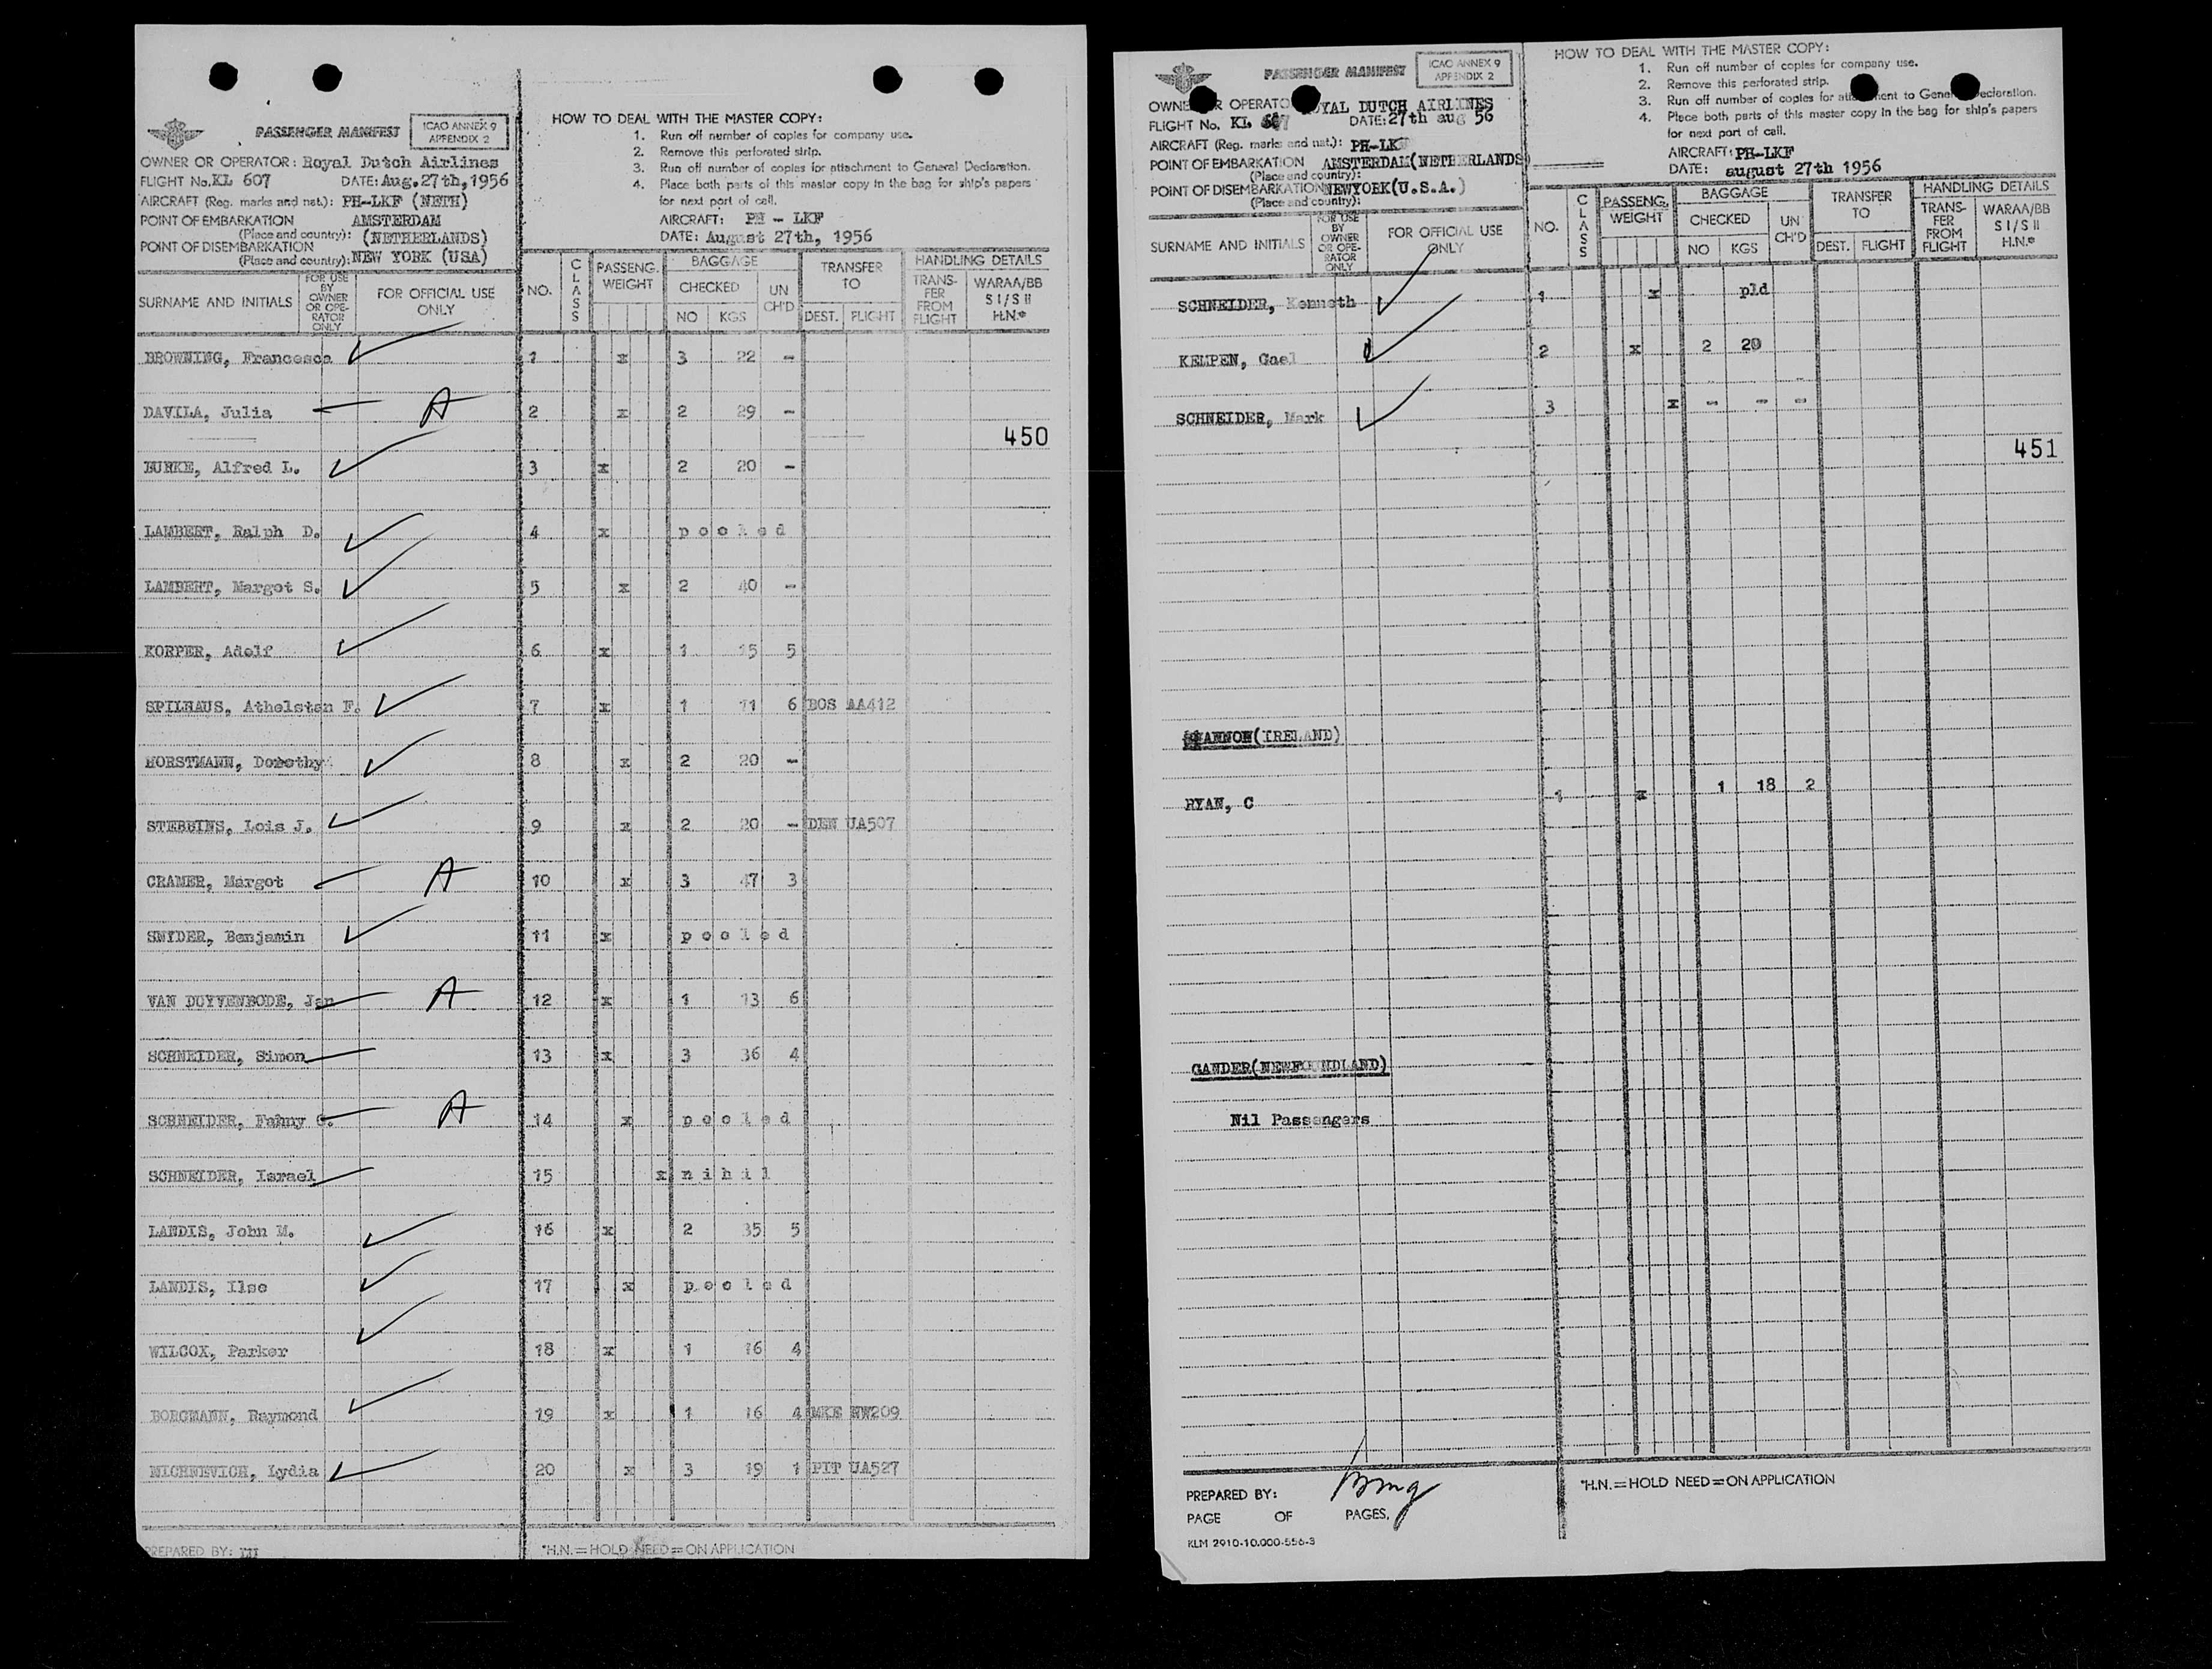 PASSENGER MANIFEST
ICAO ANNEX 9
APPENDIX 2
OWNER OR OPERATOR: Royal Dutch Airlines
FLIGHT No. KL 607 DATE: Aug. 27th, 1956
AIRCRAFT (Reg. marks and nat.): PH-LKF (NETH)
POINT OF EMBARKATION AMSTERDAM
(Place and country): (NETHERLANDS)
POINT OF DISEMBARKATION
(Place and country): NEW YORK (USA)
HOW TO DEAL WITH THE MASTER COPY:
1. Run off number of copies for company use.
2. Remove this perforated strip.
3. Run off number of copies for attachment to General Declaration.
4. Place both parts of this master copy in the bag for ship's papers
for next port of call.
AIRCRAFT: PH - LKF
DATE: August 27th, 1956
SURNAME AND INITIALS
FOR USE BY OWNER OR OPE-RATOR ONLY
FOR OFFICIAL USE ONLY
NO.
CLASS
PASSENG. WEIGHT
BAGGAGE
CHECKED
NO KGS
UN CH'D
TRANSFER TO
DEST. FLIGHT
HANDLING DETAILS
TRANS-FER FROM FLIGHT
WARAA/BB S I / S II H.N.*
BROWNING, Francesca 1 x 3 22 -
DAVILA, Julia A 2 x 2 29 -
450
BURKE, Alfred L. 3 x 2 20 -
LAMBERT, Ralph D. 4 x pooled
LAMBERT, Margot S. 5 x 2 40 -
KORPER, Adolf 6 x 1 15 5
SPILHAUS, Athelstan F. 7 x 1 11 6 BOS AA412
HORSTMANN, Dorothy 8 x 2 20 -
STEBBINS, Lois J. 9 x 2 20 - DEN UA507
CRAMER, Margot A 10 x 3 47 3
SNYDER, Benjamin 11 x pooled
VAN DUYVENBODE, Jan A 12 x 1 13 6
SCHNEIDER, Simon 13 x 3 36 4
SCHNEIDER, Fanny G. A 14 x pooled
SCHNEIDER, Israel 15 x nihil
LANDIS, John M. 16 x 2 35 5
LANDIS, Ilse 17 x pooled
WILCOX, Parker 18 x 1 16 4
BORGMANN, Raymond 19 x 1 16 4 MKE NW209
MICHNEVICH, Lydia 20 x 3 19 1 PIT UA527
PREPARED BY:
*H.N. = HOLD NEED = ON APPLICATION
PASSENGER MANIFEST
ICAO ANNEX 9
APPENDIX 2
OWNER OR OPERATOR ROYAL DUTCH AIRLINES
FLIGHT No. KL 607 DATE: 27th aug 56
AIRCRAFT (Reg. marks and nat.): PH-LKF
POINT OF EMBARKATION AMSTERDAM(NETHERLANDS)
(Place and country):
POINT OF DISEMBARKATION NEWYORK(U.S.A.)
(Place and country):
HOW TO DEAL WITH THE MASTER COPY:
1. Run off number of copies for company use.
2. Remove this perforated strip.
3. Run off number of copies for attachment to General Declaration.
4. Place both parts of this master copy in the bag for ship's papers
for next port of call.
AIRCRAFT: PH-LKF
DATE: august 27th 1956
SURNAME AND INITIALS
FOR USE BY OWNER OR OPE-RATOR ONLY
FOR OFFICIAL USE ONLY
NO.
CLASS
PASSENG. WEIGHT
BAGGAGE
CHECKED
NO KGS
UN CH'D
TRANSFER TO
DEST. FLIGHT
HANDLING DETAILS
TRANS-FER FROM FLIGHT
WARAA/BB S I / S II H.N.*
SCHNEIDER, Kenneth 1 x pld
KEMPEN, Gael 2 x 2 20
SCHNEIDER, Mark 3 x - - -
451
SHANNON(IRELAND)
RYAN, C 1 x 1 18 2
GANDER(NEWFOUNDLAND)
Nil Passengers
PREPARED BY:
PAGE OF PAGES.
KLM 2910-10.000-556-3
*H.N. = HOLD NEED = ON APPLICATION